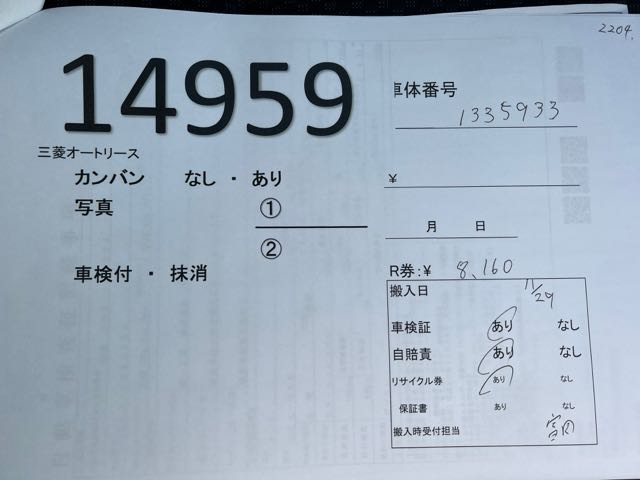 2204.
14959
車体番号
1335933
三菱オートリース
カンバン なし ・ あり
¥
写真 ①
月 日
②
車検付 ・ 抹消
R券:¥ 8,160
搬入日 11/29
車検証 あり なし
自賠責 あり なし
リサイクル券 あり なし
保証書 あり なし
搬入時受付担当